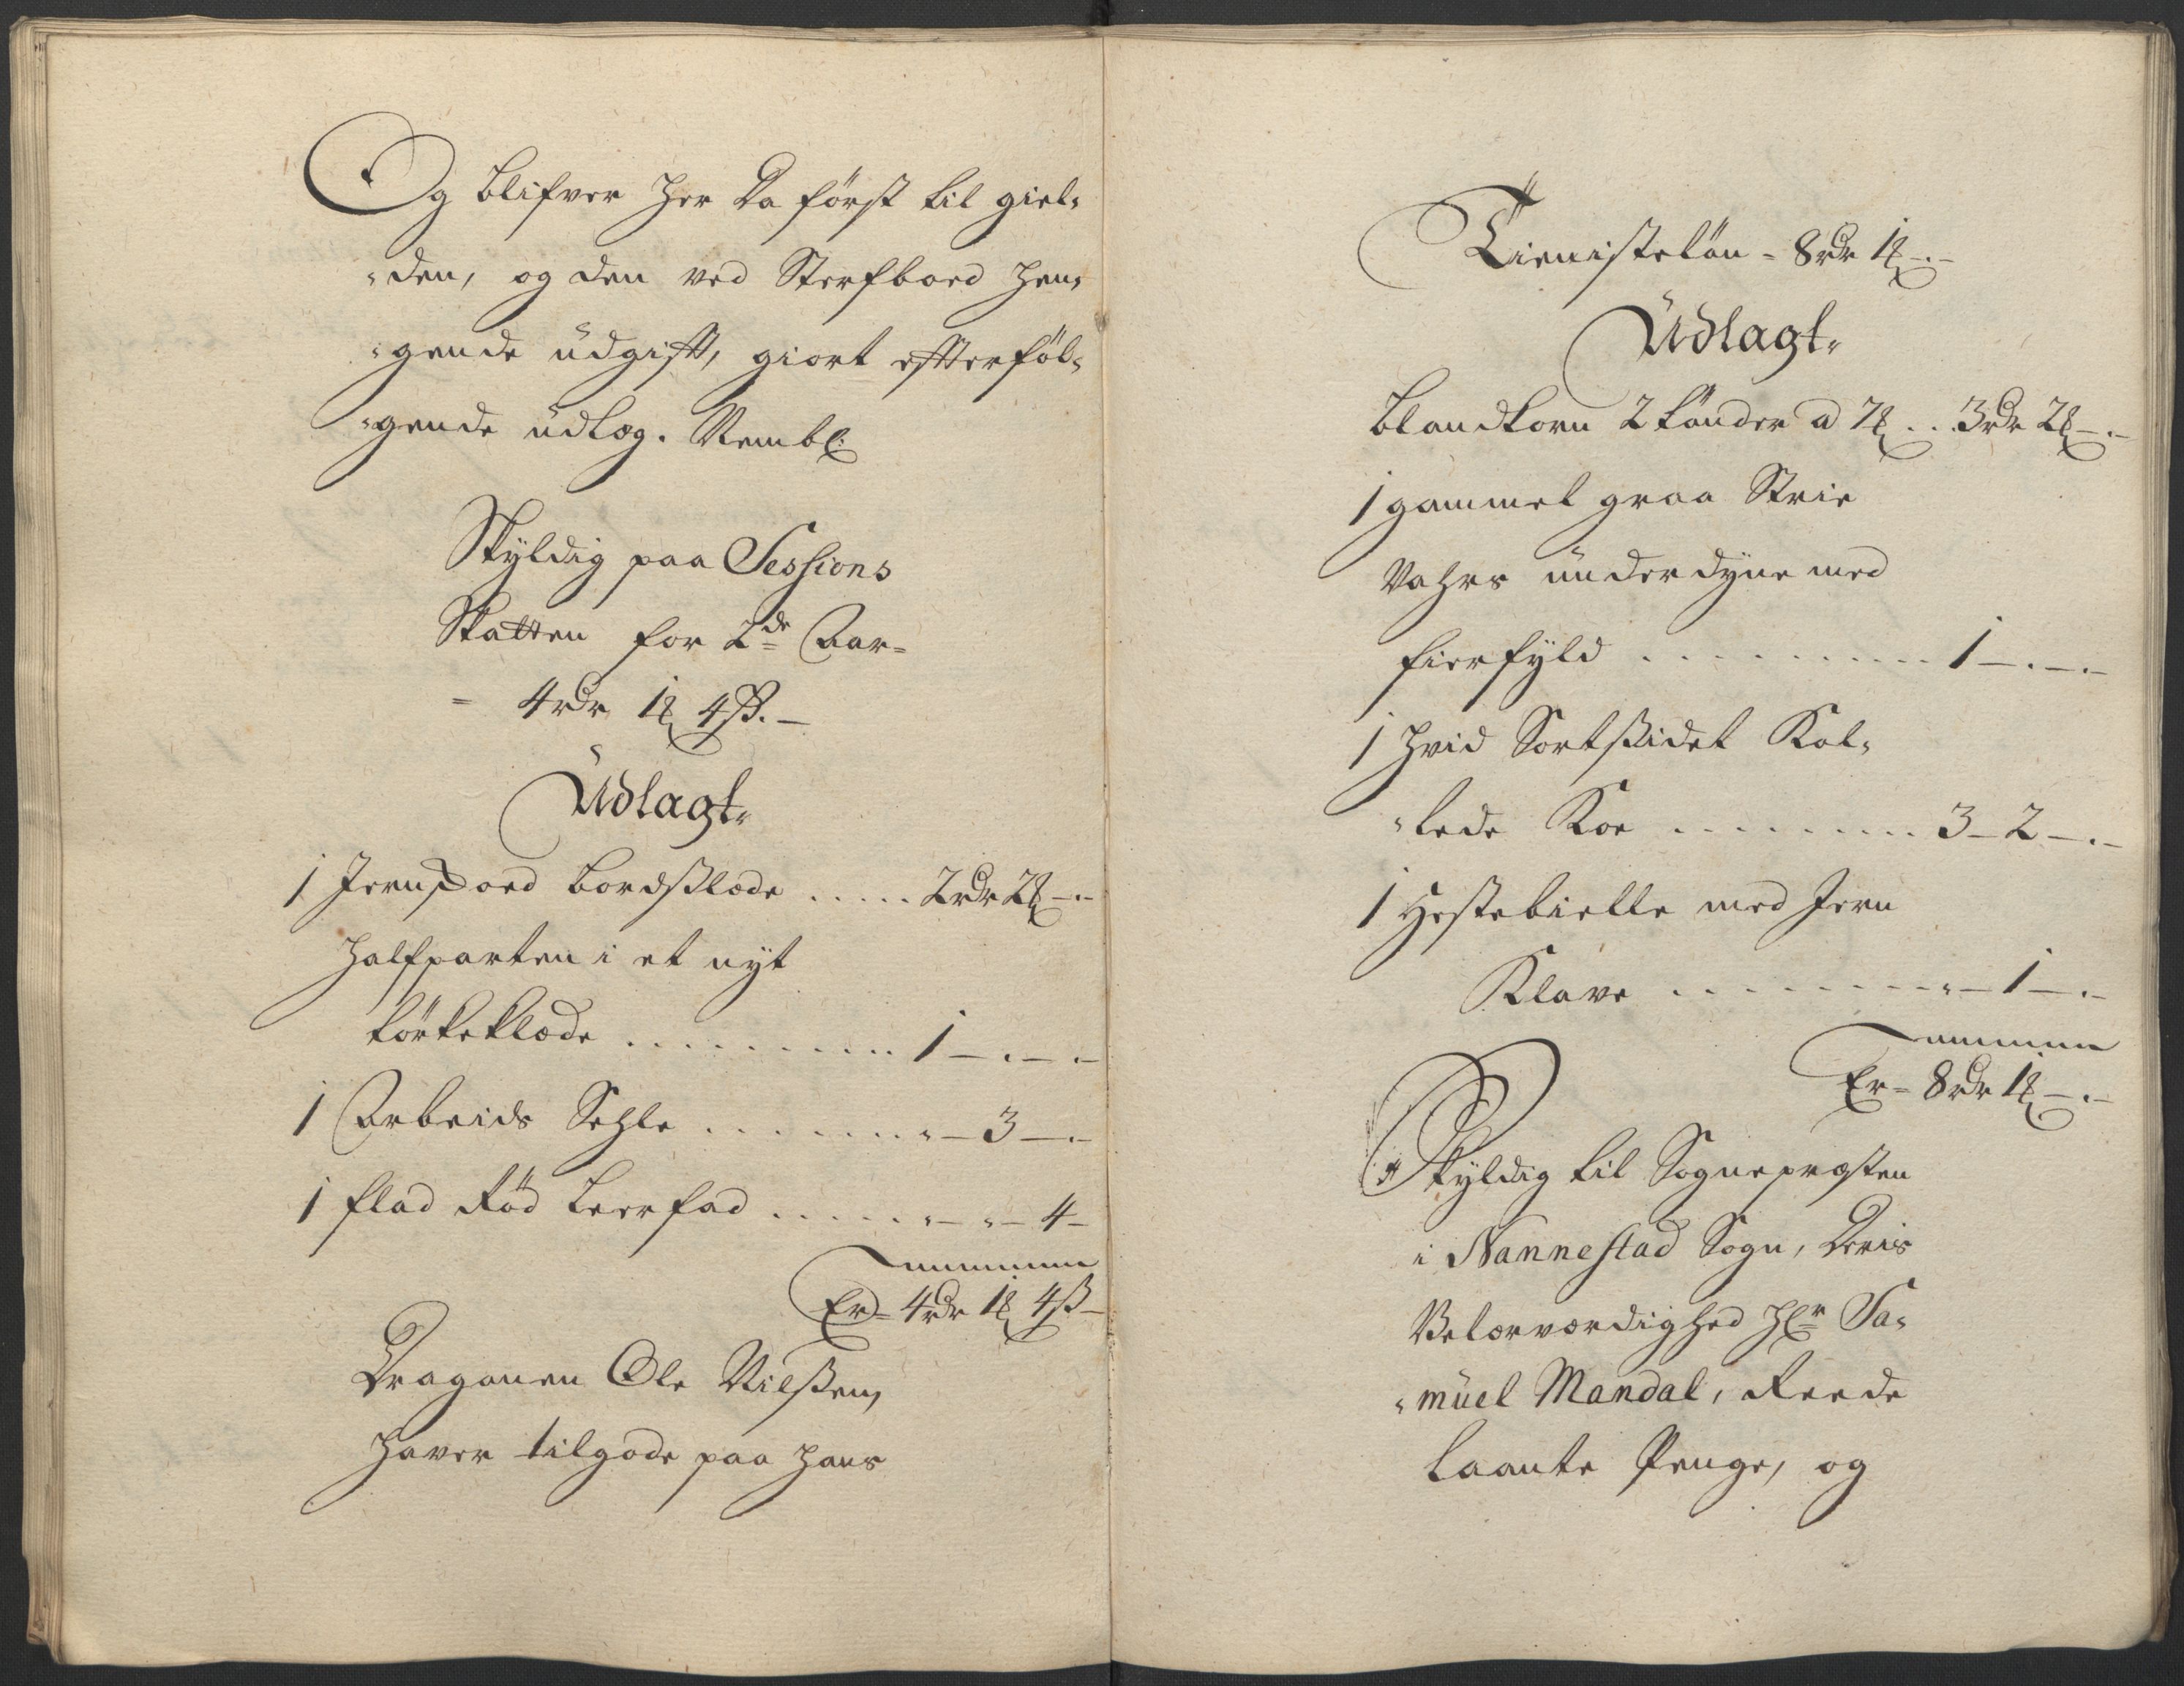 Og blifver her da först til giel-
-den, og den ved Sterfboed hen-
-gende üdgifft, giort effterföl-
-gende üdlæg. Nembl:
Skÿldig paa Sessions
Skatten for 2de Aar=
= 4rdr 1℔ 4ß.–
Üdlagt.
1 Jernskoed bordslæde ..... 2rdr 2℔ – . –
Halfparten i et nÿt
törkeklæde .......... 1 – . – . –
1 Arbeids Sehle ........ . – 3 – . –
1 flad Röd Leerfad ...... . – . – 4 –
Er = 4rdr 1℔ 4ß –
Dragonen Ole Nilßen,
haver tilgode paa hans
Tienisteløn = 8rdr 1℔ – . –
Üdlagt.
Blandkorn 2 tönder a 7℔ .. 3rdr 2℔ – . –
1 gammel graa Strie
Vahrs ünderdÿne med
fierfÿld .......... 1 – . – . –
1 hvid Sortsidet Kol-
-lede Koe ......... 3 – 2 – . –
1 Hestebielle med Jern
Klave .......... . – 1 – . –
Er = 8rdr 1℔ – . –
Skÿldig til Sognepræsten
i Nannestad Sogn, Deris
Velærværdighed Hr Sa-
-müel Mandal, Reede
laante Penge, og